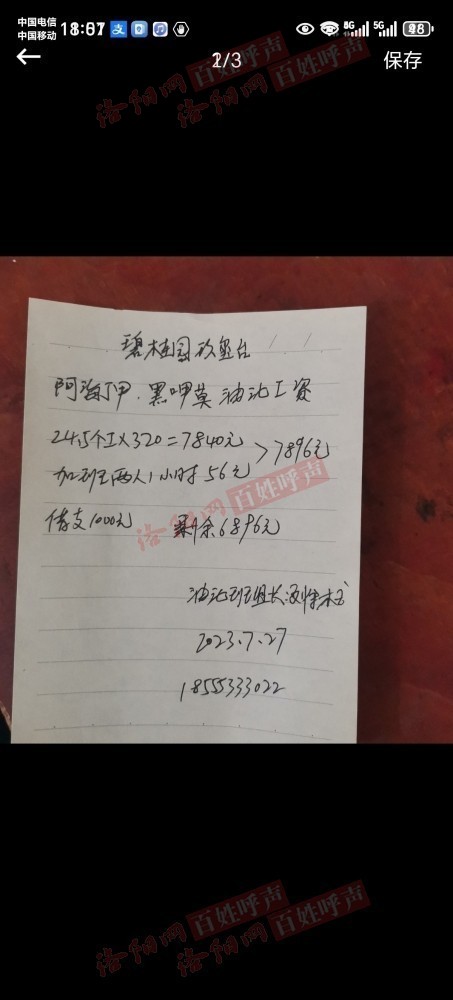 中国电信
中国移动
5G 5G
/3
保存
洛阳网 百姓呼声
洛阳网 百姓呼声
碧桂园玖玺台
阿海 甲.黑呷莫 油池工资
24.5个工×320=7840元
>7896元
加班两人1小时56元
洛阳网 百姓呼声
借支1000元 剩余6896元
油池班组长
2023.7.27
18555333022
洛阳网 百姓呼声
洛阳网 百姓呼声